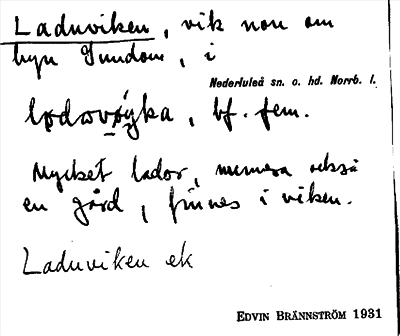 Laduviken, vik nou om
byn Sundom, i
Nederluleå sn. o. hd. Norrb. l.
bf. fem.
Mycket lador, numera också
en gård, finnes i viken.
Laduviken ek
EDVIN BRÄNNSTRÖM 1931